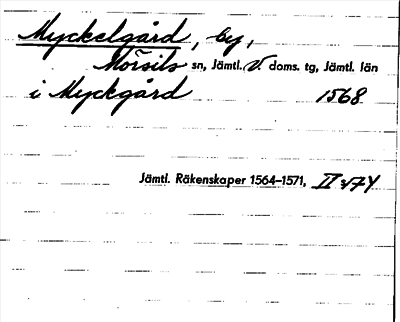 Myckelgård, by,
Mörsils sn, Jämtl. V. doms. tg, Jämtl. län
i Myckgård 1568
Jämtl. Räkenskaper 1564–1571, II